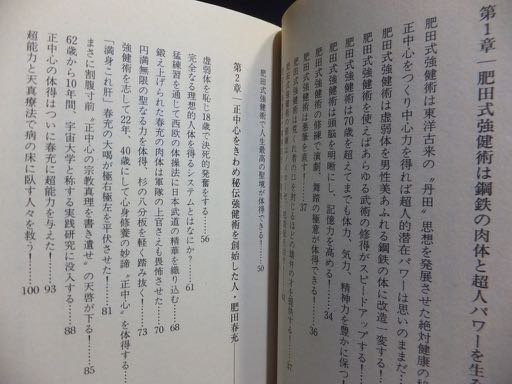 第1章──肥田式強健術は鋼鉄の肉体と超人パワーを生
肥田式強健術は東洋古来の〝丹田〟思想を発展させた絶対健康の
正中心をつくり中心力を得れば超人的潜在パワーは思いのままだ
肥田式強健術は虚弱体を男性美あふれる鋼鉄の体に改造一変する！
肥田式強健術を使えばあらゆる武術の修得がスピードアップする！
肥田式強健術は70歳を超えてまでも体力、気力、精神力を豊かに保つ
肥田式強健術は頭脳を明晰にし、記憶力を高める！ 34
肥田式強健術の修練で演劇、舞踏の極意が体得できる！ 36
肥田式強健術は悪癖を直す！ 37
肥田式強健術で人生最高の聖境が体得できる！ 50
第2章──正中心をきわめ秘伝強健術を創始した人・肥田春充──
虚弱体を恥じ18歳で決死的発奮をする 56
完全なる理想的人体を得るシステムとはなにか？ 61
猛練習を通して西欧の体操法に日本武道の精華を織り込む 68
鍛え上げられた春充の肉体には軍隊の上官さえも畏怖させた 70
円満無限の聖なる力を体得、杉の八分板を軽く踏み抜く！ 73
強健術を志して22年、40歳にして心身修養の妙諦〝正中心〟を体得する
「満身これ肝」春充の大喝が極右極左を平伏させた！ 81
まさに割腹寸前〝正中心の宗教真理を書き遺せ〟の天啓が下る！ 85
62歳から10年間、宇宙大学と称する実践研究に没入する 88
正中心の体得はついに春充に超能力を与えた！ 93
超能力と天真療法で病の床に臥す人々を救う！ 100